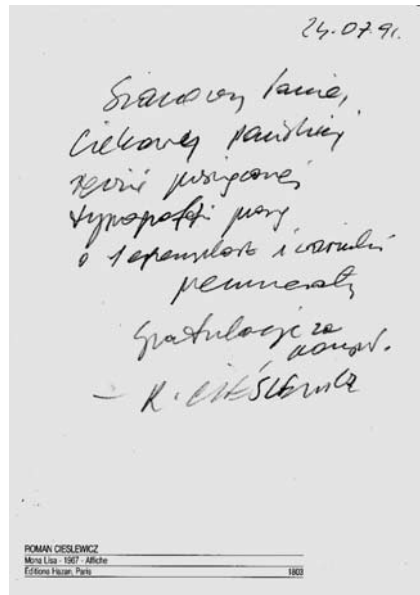 24.07.91.
Szanowny Panie,
Ciekawy pańskiej
poświęconej
typografii proszę
o 1 egzemplarz i warunki
prenumeraty
Gratulacje za
– R. CIEŚLEWICZ
ROMAN CIESLEWICZ
Mona Lisa - 1967 - Affiche
Editions Hazan, Paris 1803